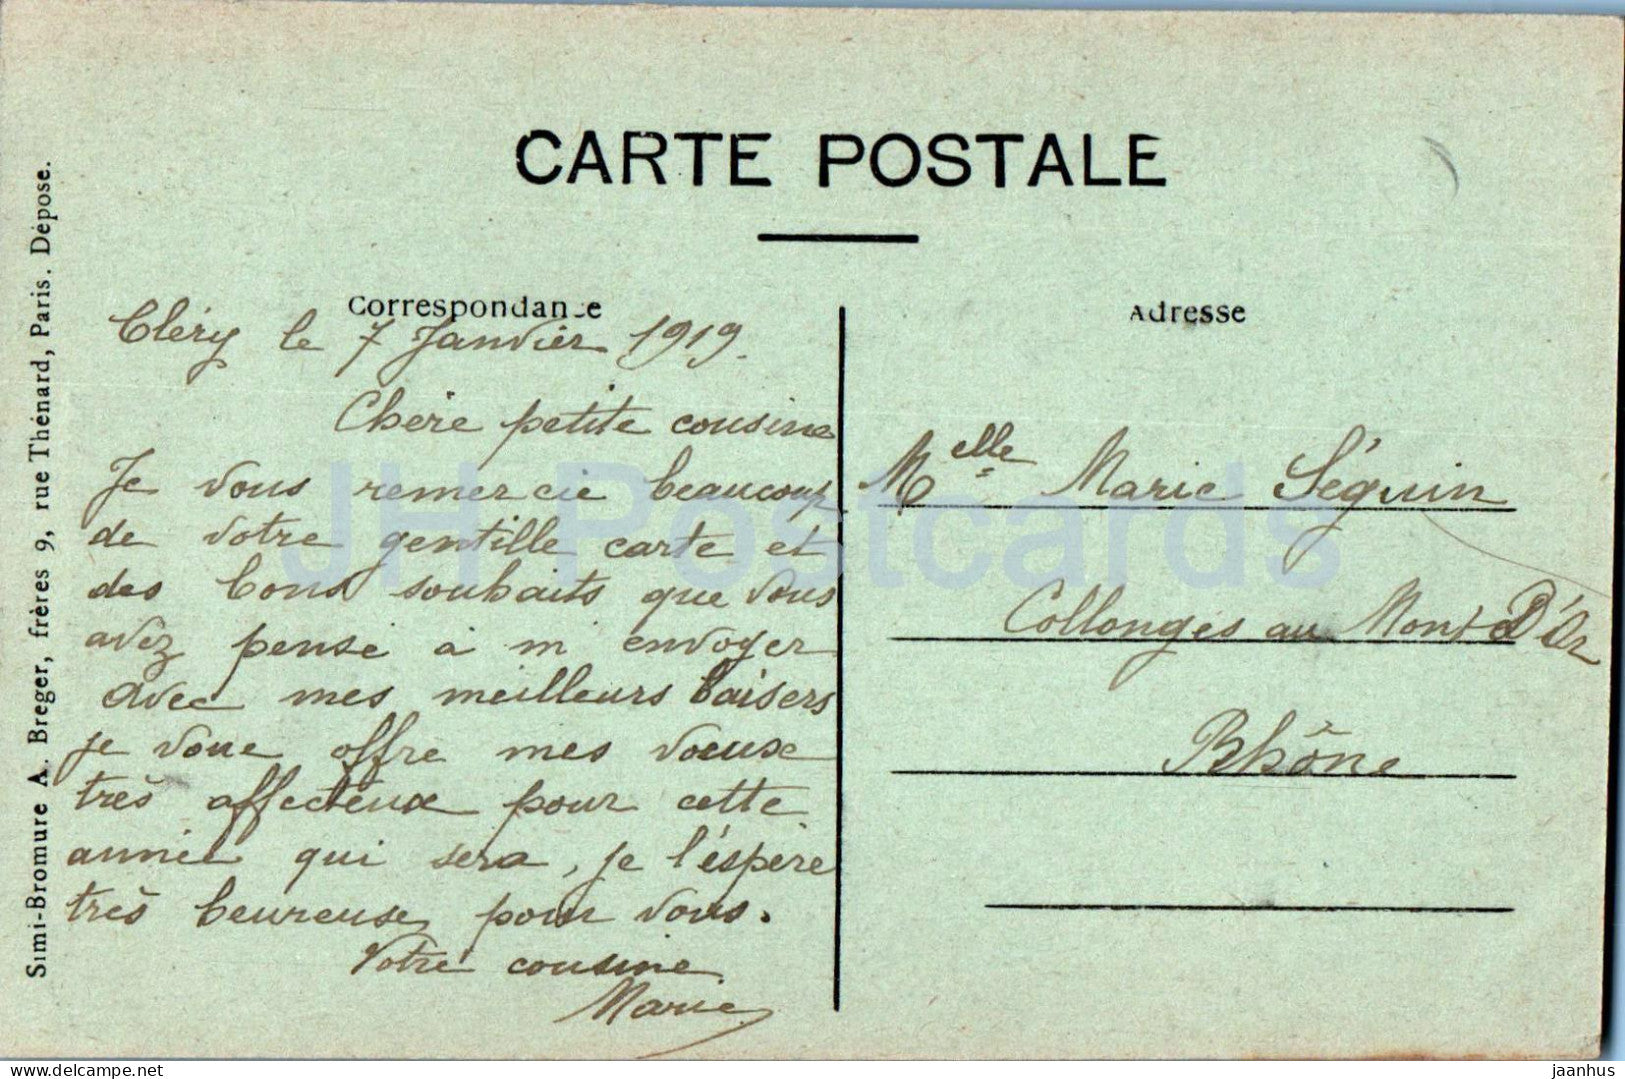 CARTE POSTALE
Correspondance
Adresse
Cléry le 7 Janvier 1919.
Chère petite cousine
Je vous remercie beaucoup
de votre gentille carte et
des bons souhaits que vous
avez pensé à m'envoyer
avec mes meilleurs baisers
je vous offre mes voeux
très affectueux pour cette
année qui sera, je l'éspère
très heureuse pour vous.
Votre cousine
Marie
Melle Marie Séguin
Collonges au Mont D'Or
Rhône
Simi-Bromure A. Breger, frères 9, rue Thénard, Paris. Déposé.
JH Postcards
delcampe.net
jaanhus